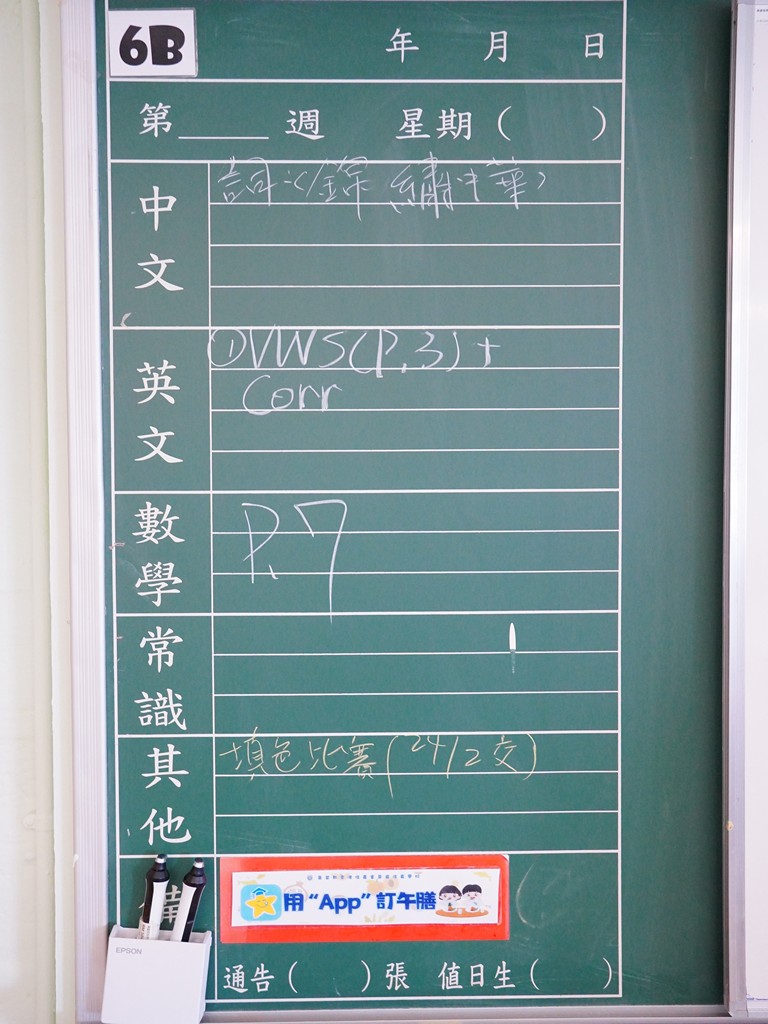 6B
年 月 日
第____週 星期( )
中文
詞/(錦繡中華)
英文
①VWS(P.3)+
Corr
數學
P.7
常識
其他
填色比賽(24/2交)
備
用“App”訂午膳
EPSON
通告( )張 值日生( )